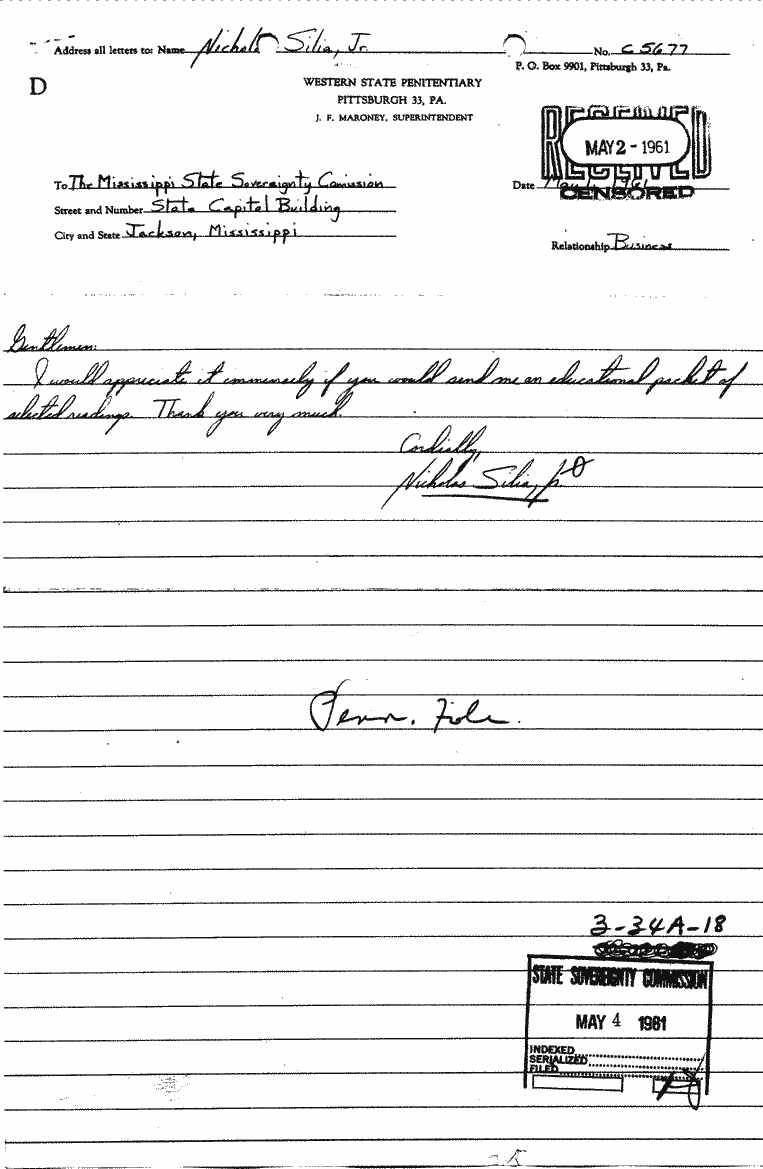 Address all letters to: Name Nicholas Silia, Jr. No. C 5677
P. O. Box 9901, Pittsburgh 33, Pa.
D
WESTERN STATE PENITENTIARY
PITTSBURGH 33, PA.
J. F. MARONEY, SUPERINTENDENT
RECEIVED
MAY 2 - 1961
CENSORED
To The Mississippi State Sovereignty Comission
Date May 1961
Street and Number State Capitol Building
City and State Jackson, Mississippi
Relationship Business
Gentlemen:
I would appreciate it immensely if you would send me an educational packet of
selected readings. Thank you very much.
Cordially,
Nicholas Silia, Jr.
Penn. File.
3-34A-18
STATE SOVEREIGNTY COMMISSION
MAY 4 1961
INDEXED
SERIALIZED
FILED